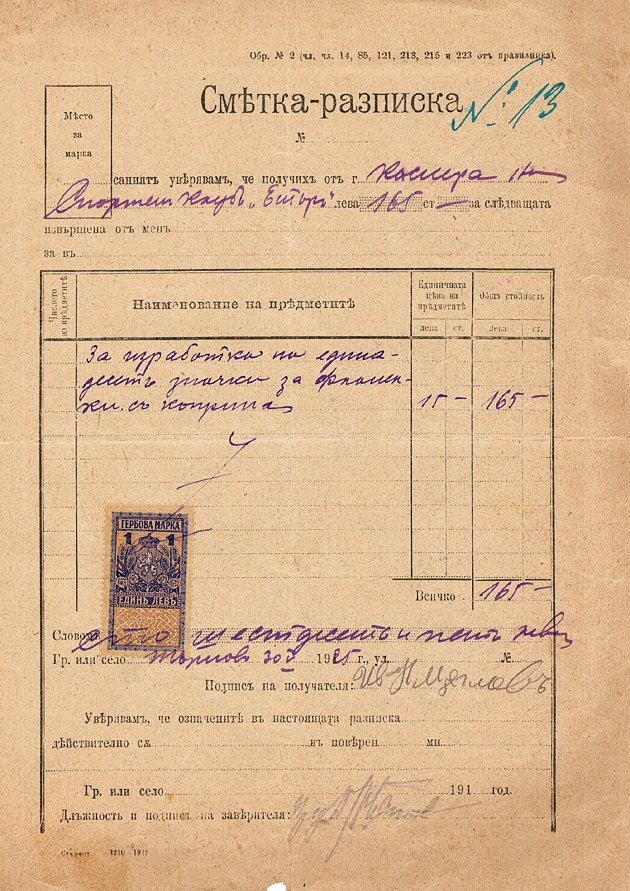 Обр. № 2 (чл. чл. 14, 85, 121, 213, 215 и 223 отъ правилника).
Смѣтка-разписка № 13
№
Мѣсто
за
марка
саниятъ увѣрявамъ, че получихъ отъ г. Касиера на
Спортенъ клубъ „Етъръ“ лева 165 ст — за слѣдващата
извършена отъ менъ
за въ
Числото на прѣдметитѣ
Наименование на прѣдметитѣ
Единичната цѣна на прѣдметитѣ
Обща стойность
лева ст. лева ст.
За изработка на едина-
десетъ значки за фланел-
ки съ коприна 15 — 165 —
ТЕРБОВА МАРКА
1 1
ЕДИНЪ ЛЕВЪ
Всичко 165 —
Словомъ сто шестдесетъ и петь лева
Гр. или село Търново 30 V 1925 г., ул. №
Подпись на получателя: Ив.
Увѣрявамъ, че означенитѣ въ настоящата разписка
дѣйствително сѫ въ повѣрен ми
Гр. или село 191 год.
Длъжность и подпись на завѣрителя:
3210 - 1918